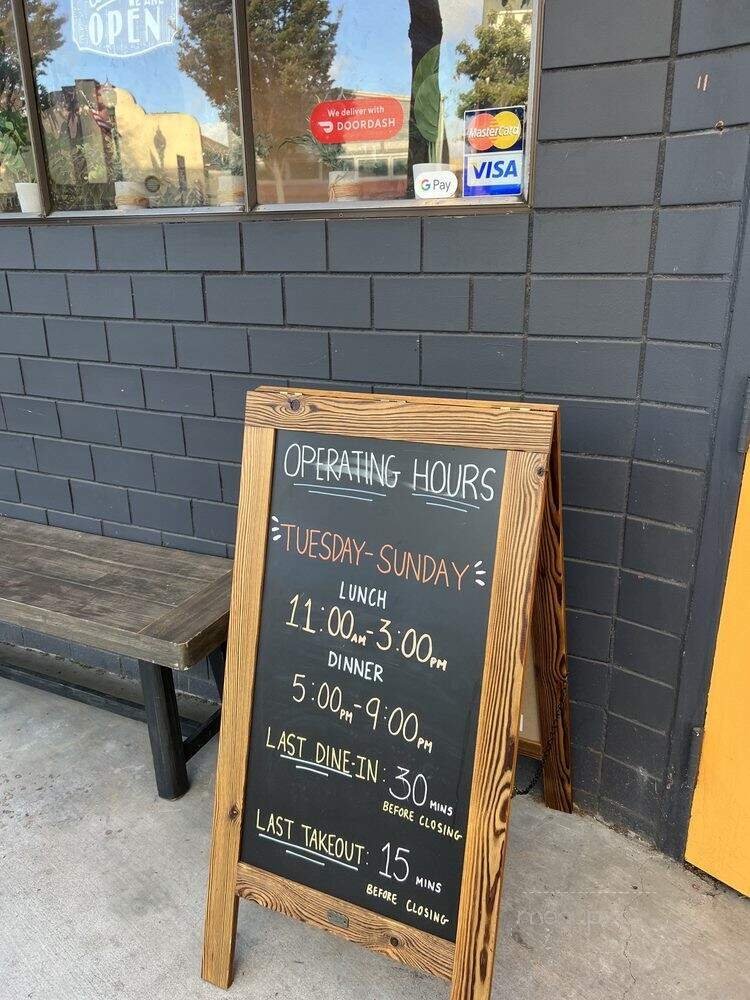 WE ARE
OPEN
We deliver with
DOORDASH
MasterCard
VISA
G Pay
OPERATING HOURS
TUESDAY-SUNDAY
LUNCH
11:00AM-3:00PM
DINNER
5:00PM-9:00PM
LAST DINE-IN: 30 MINS
BEFORE CLOSING
LAST TAKEOUT: 15 MINS
BEFORE CLOSING